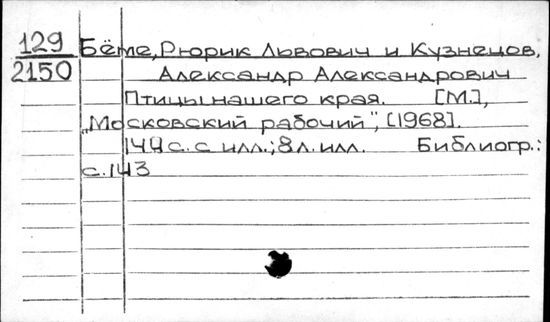 129
2150
Бёме, Рюрик Львович и Кузнецов,
Александр Александрович
Птицы нашего края. [М.],
„Московский рабочий", [1968].
144 с. с илл.; 8 л. илл. Библиогр.:
с. 143